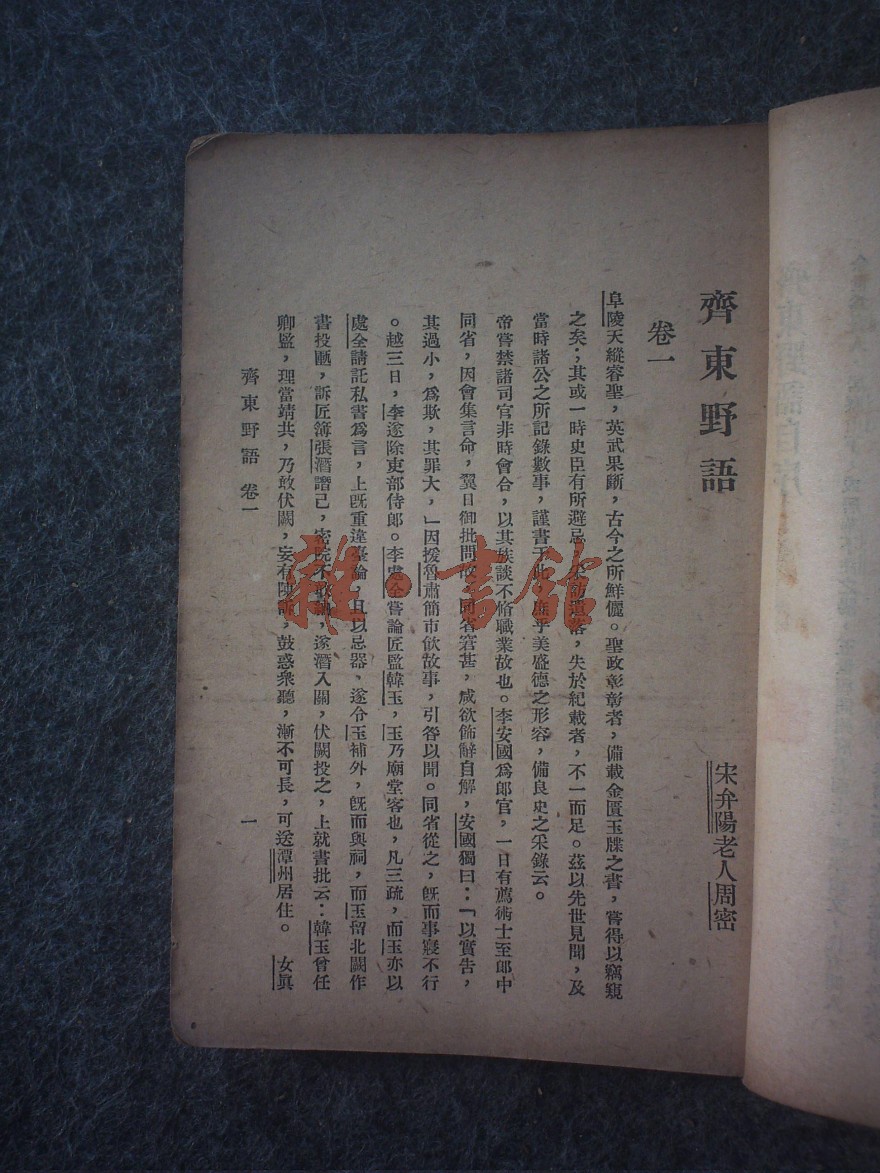 齊東野語
宋弁陽老人周密
卷一
阜陵天縱睿聖，英武果斷，古今之所鮮儷。聖政彰彰者，備載金匱玉牒之書，嘗得以竊窺
之矣；其或一時史臣有所避忌，采訪遺落，失於紀載者，不一而足。茲以先世見聞，及
當時諸公之所記錄數事，謹書于此，庶乎美盛德之形容，備良史之采錄云。
帝嘗禁諸司官非時會合，以其族談不脩職業故也。李安國爲郎官，一日有薦術士至郎中
同省，因會集言命，翼日御批問故，同省窘甚，咸欲飾辭自解，安國獨曰：「以實告，
其過小，爲欺，其罪大，」因援魯肅簡市飲故事，引咎以聞。同省從之，旣而事寢不行
。越三日，李遂除吏部侍郎。李處全嘗論匠監韓玉，玉乃廟堂客也，凡三疏，而玉亦以
處全請託私書爲言，上旣重違臺論，且以忌器，遂令玉補外，旣而與祠，而玉留北闕作
書投匭，訴匠簿張濳譖己，密院不敢，遂濳入關，伏闕投之，上就書批云：韓玉曾任
卿監，理當靖共，乃敢伏闕，妄有陳訴，鼓惑衆聽，漸不可長，可送潭州居住。　女眞
齊東野語　卷一
一
雜·書館